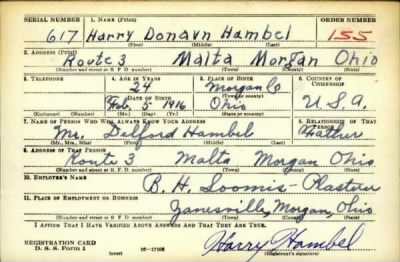 SERIAL NUMBER 1. NAME (Print) ORDER NUMBER
617 Harry Donavn Hambel 155
(First) (Middle) (Last)
2. ADDRESS (Print)
Route 3 Malta Morgan Ohio
(Number and street or R. F. D. number) (Town) (County) (State)
3. TELEPHONE 4. AGE IN YEARS 5. PLACE OF BIRTH 6. COUNTRY OF CITIZENSHIP
24 Morgan Co
DATE OF BIRTH (Town or county)
Feb 5 1916 Ohio U.S.A.
(Exchange) (Number) (Mo.) (Day) (Yr.) (State or country)
7. NAME OF PERSON WHO WILL ALWAYS KNOW YOUR ADDRESS 8. RELATIONSHIP OF THAT PERSON
Mr. Delford Hambel Father
(Mr., Mrs., Miss) (First) (Middle) (Last)
9. ADDRESS OF THAT PERSON
Route 3 Malta Morgan Ohio
(Number and street or R. F. D. number) (Town) (County) (State)
10. EMPLOYER'S NAME
B. H. Loomis - Plasterer
11. PLACE OF EMPLOYMENT OR BUSINESS
Zanesville, Morgan, Ohio
(Number and street or R. F. D. number) (Town) (County) (State)
I AFFIRM THAT I HAVE VERIFIED ABOVE ANSWERS AND THAT THEY ARE TRUE.
REGISTRATION CARD
D. S. S. Form 1 (over) Harry Hambel
(Registrant's signature)